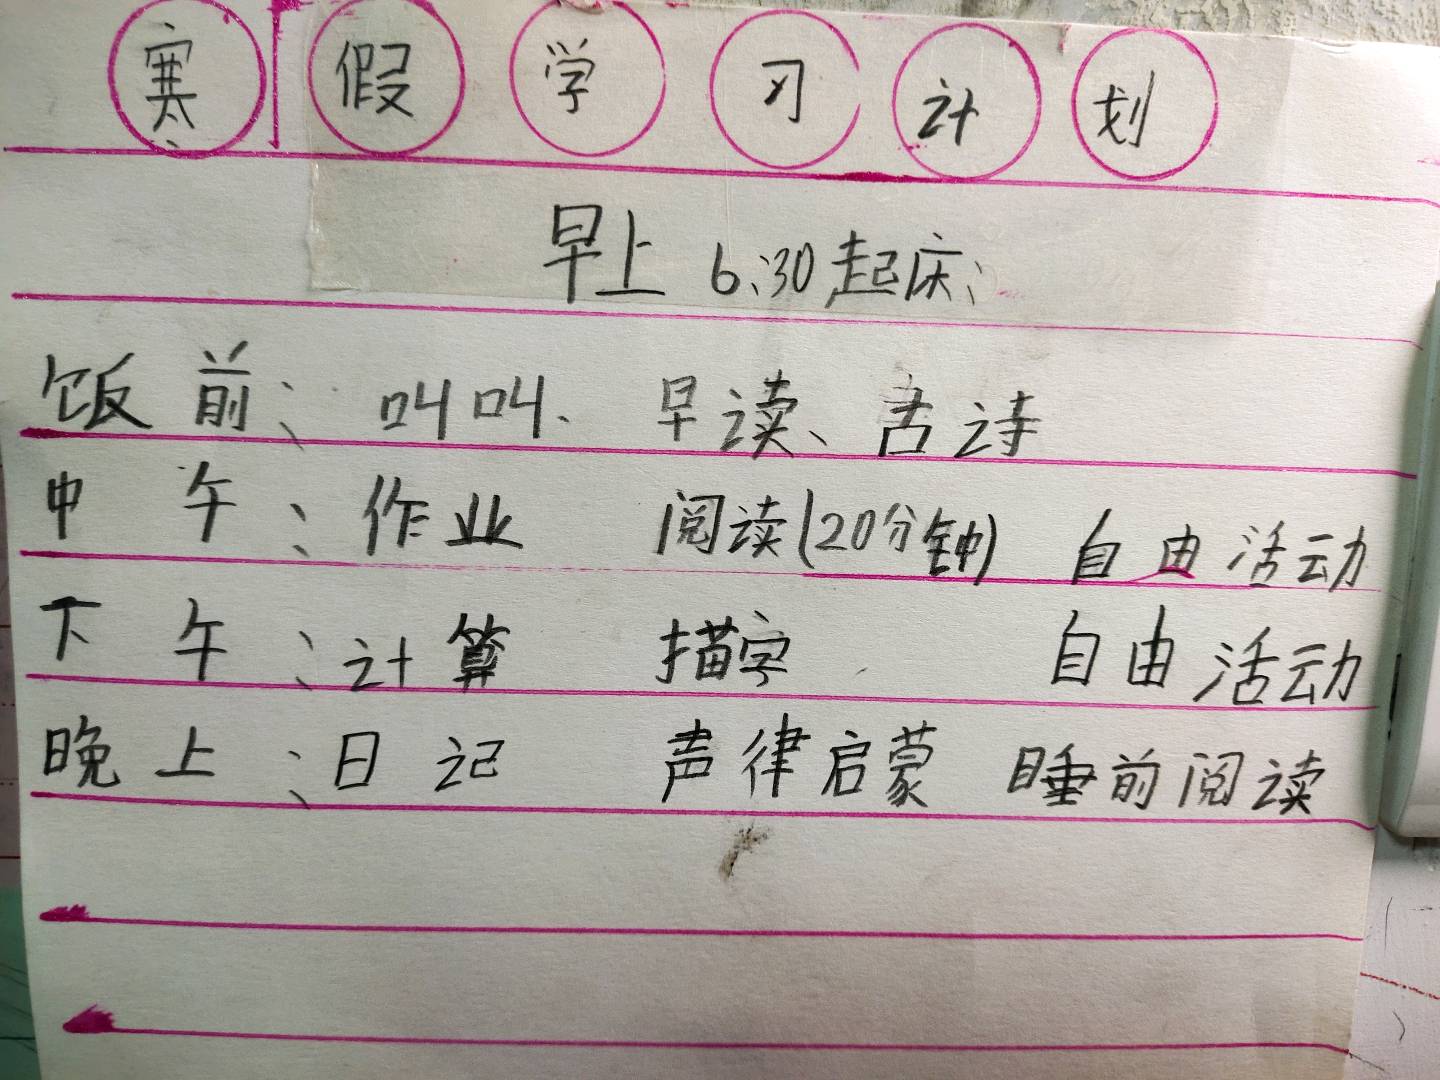 寒假学习计划
早上 6:30起床:
饭前: 叫叫、 早读、古诗
中午: 作业 阅读(20分钟) 自由活动
下午: 计算 描字 自由活动
晚上: 日记 声律启蒙 睡前阅读